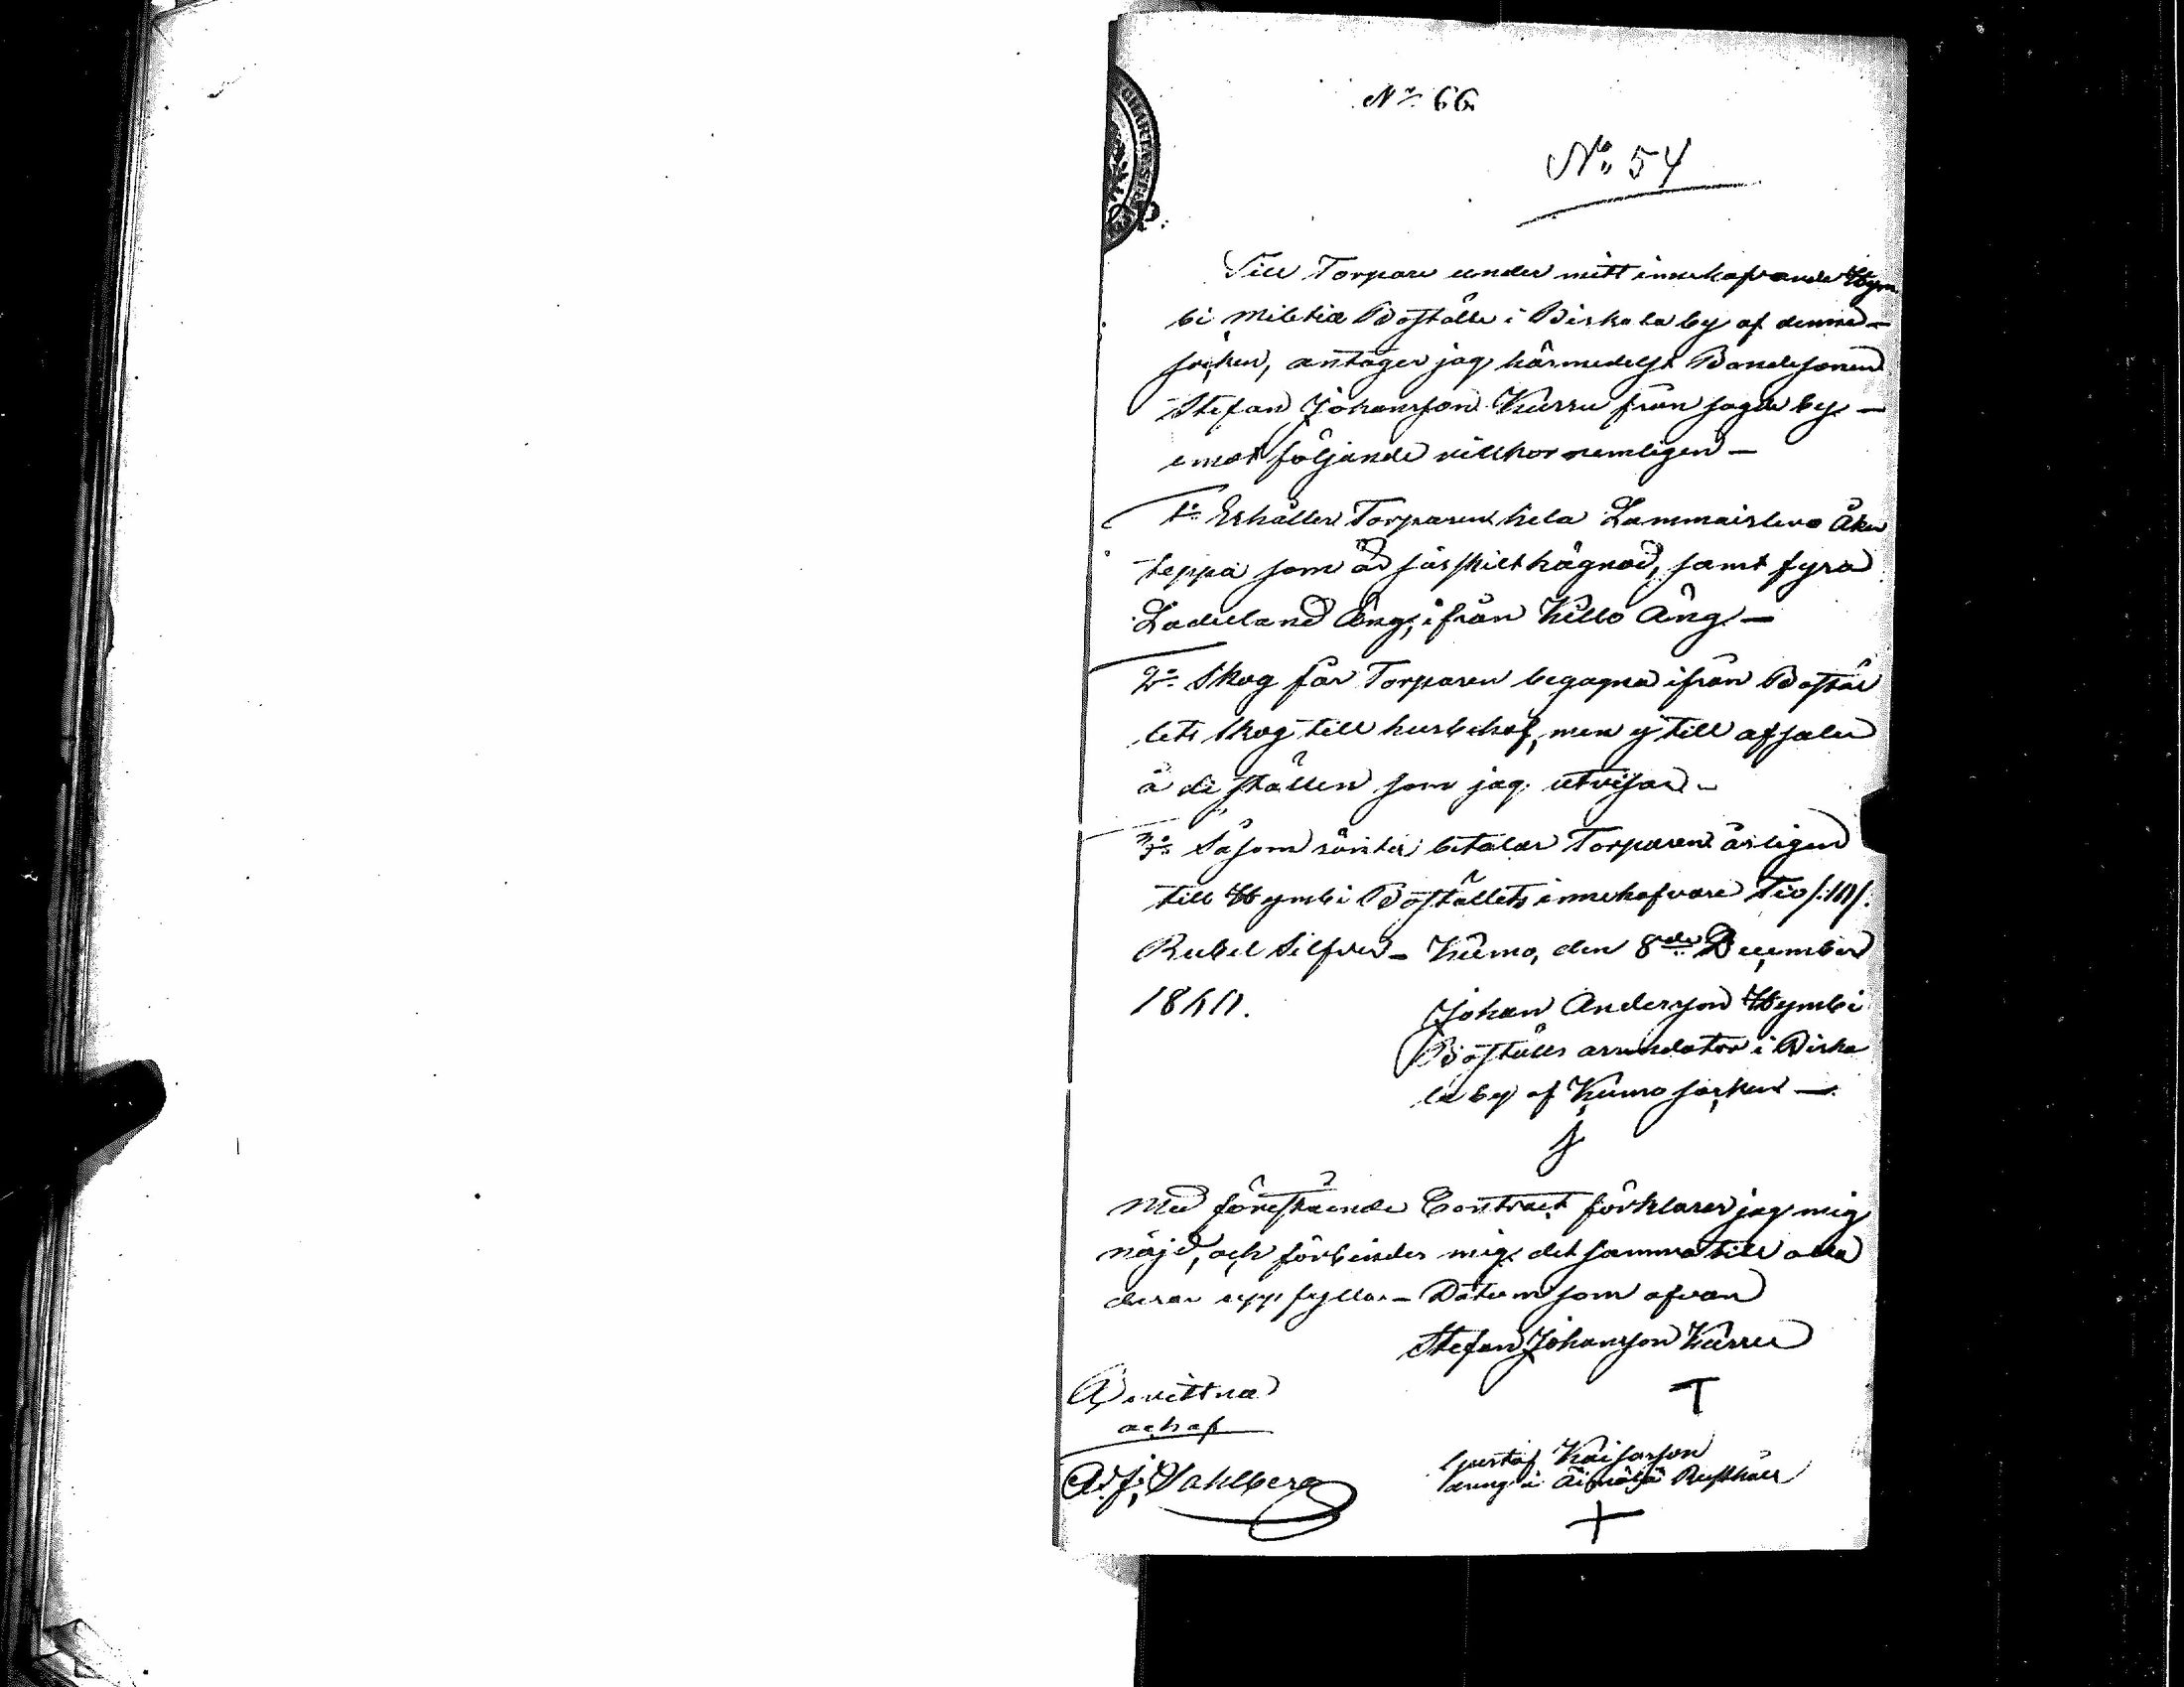 No 66
No 54
CHARTA S
Till Torpare under mitt innehafvande Hym
bi Militiæ Boställe i Piskola by af denna
socken, antager jag härmedelst Bondesonen
Stefan Johansson Kurru från sagde by
emot följande villkor nemligen
1o Erhåller Torparen hela Lammaisleno Åker
teppa som är särskilt hägnad, samt fyra
Ladeland Äng, ifrån Killo Äng
2o Skog får Torparen begagna ifrån Bostäl
lets skog till husbehof, men ej till afsalu
å de ställen som jag utvisar
3o Såsom ränta betalar Torparen årligen
till Hymbi Boställets innehafvare Tio /:10/:
Rubel Silfver Kumo, den 8de December
18
Johan Andersson Hymbi
Boställs arrendator i Piska
la by af Kumo socken
Med förestående Contract förklarar jag mig
nöjd, och förbinder mig det samma till alla
delar uppfylla Datum som ofvan
Stefan Johansson Kurru
Bevittna
A. J. Dahlberg
Gustaf Kaisasson
dräng å Äimälä Rusthåll